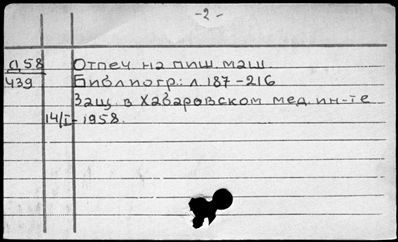 -2-
Д58 Отпеч. на пиш. маш.
439 Библиогр.: л. 187-216
Защ. в Хабаровском мед. ин-те
14/I-1958.